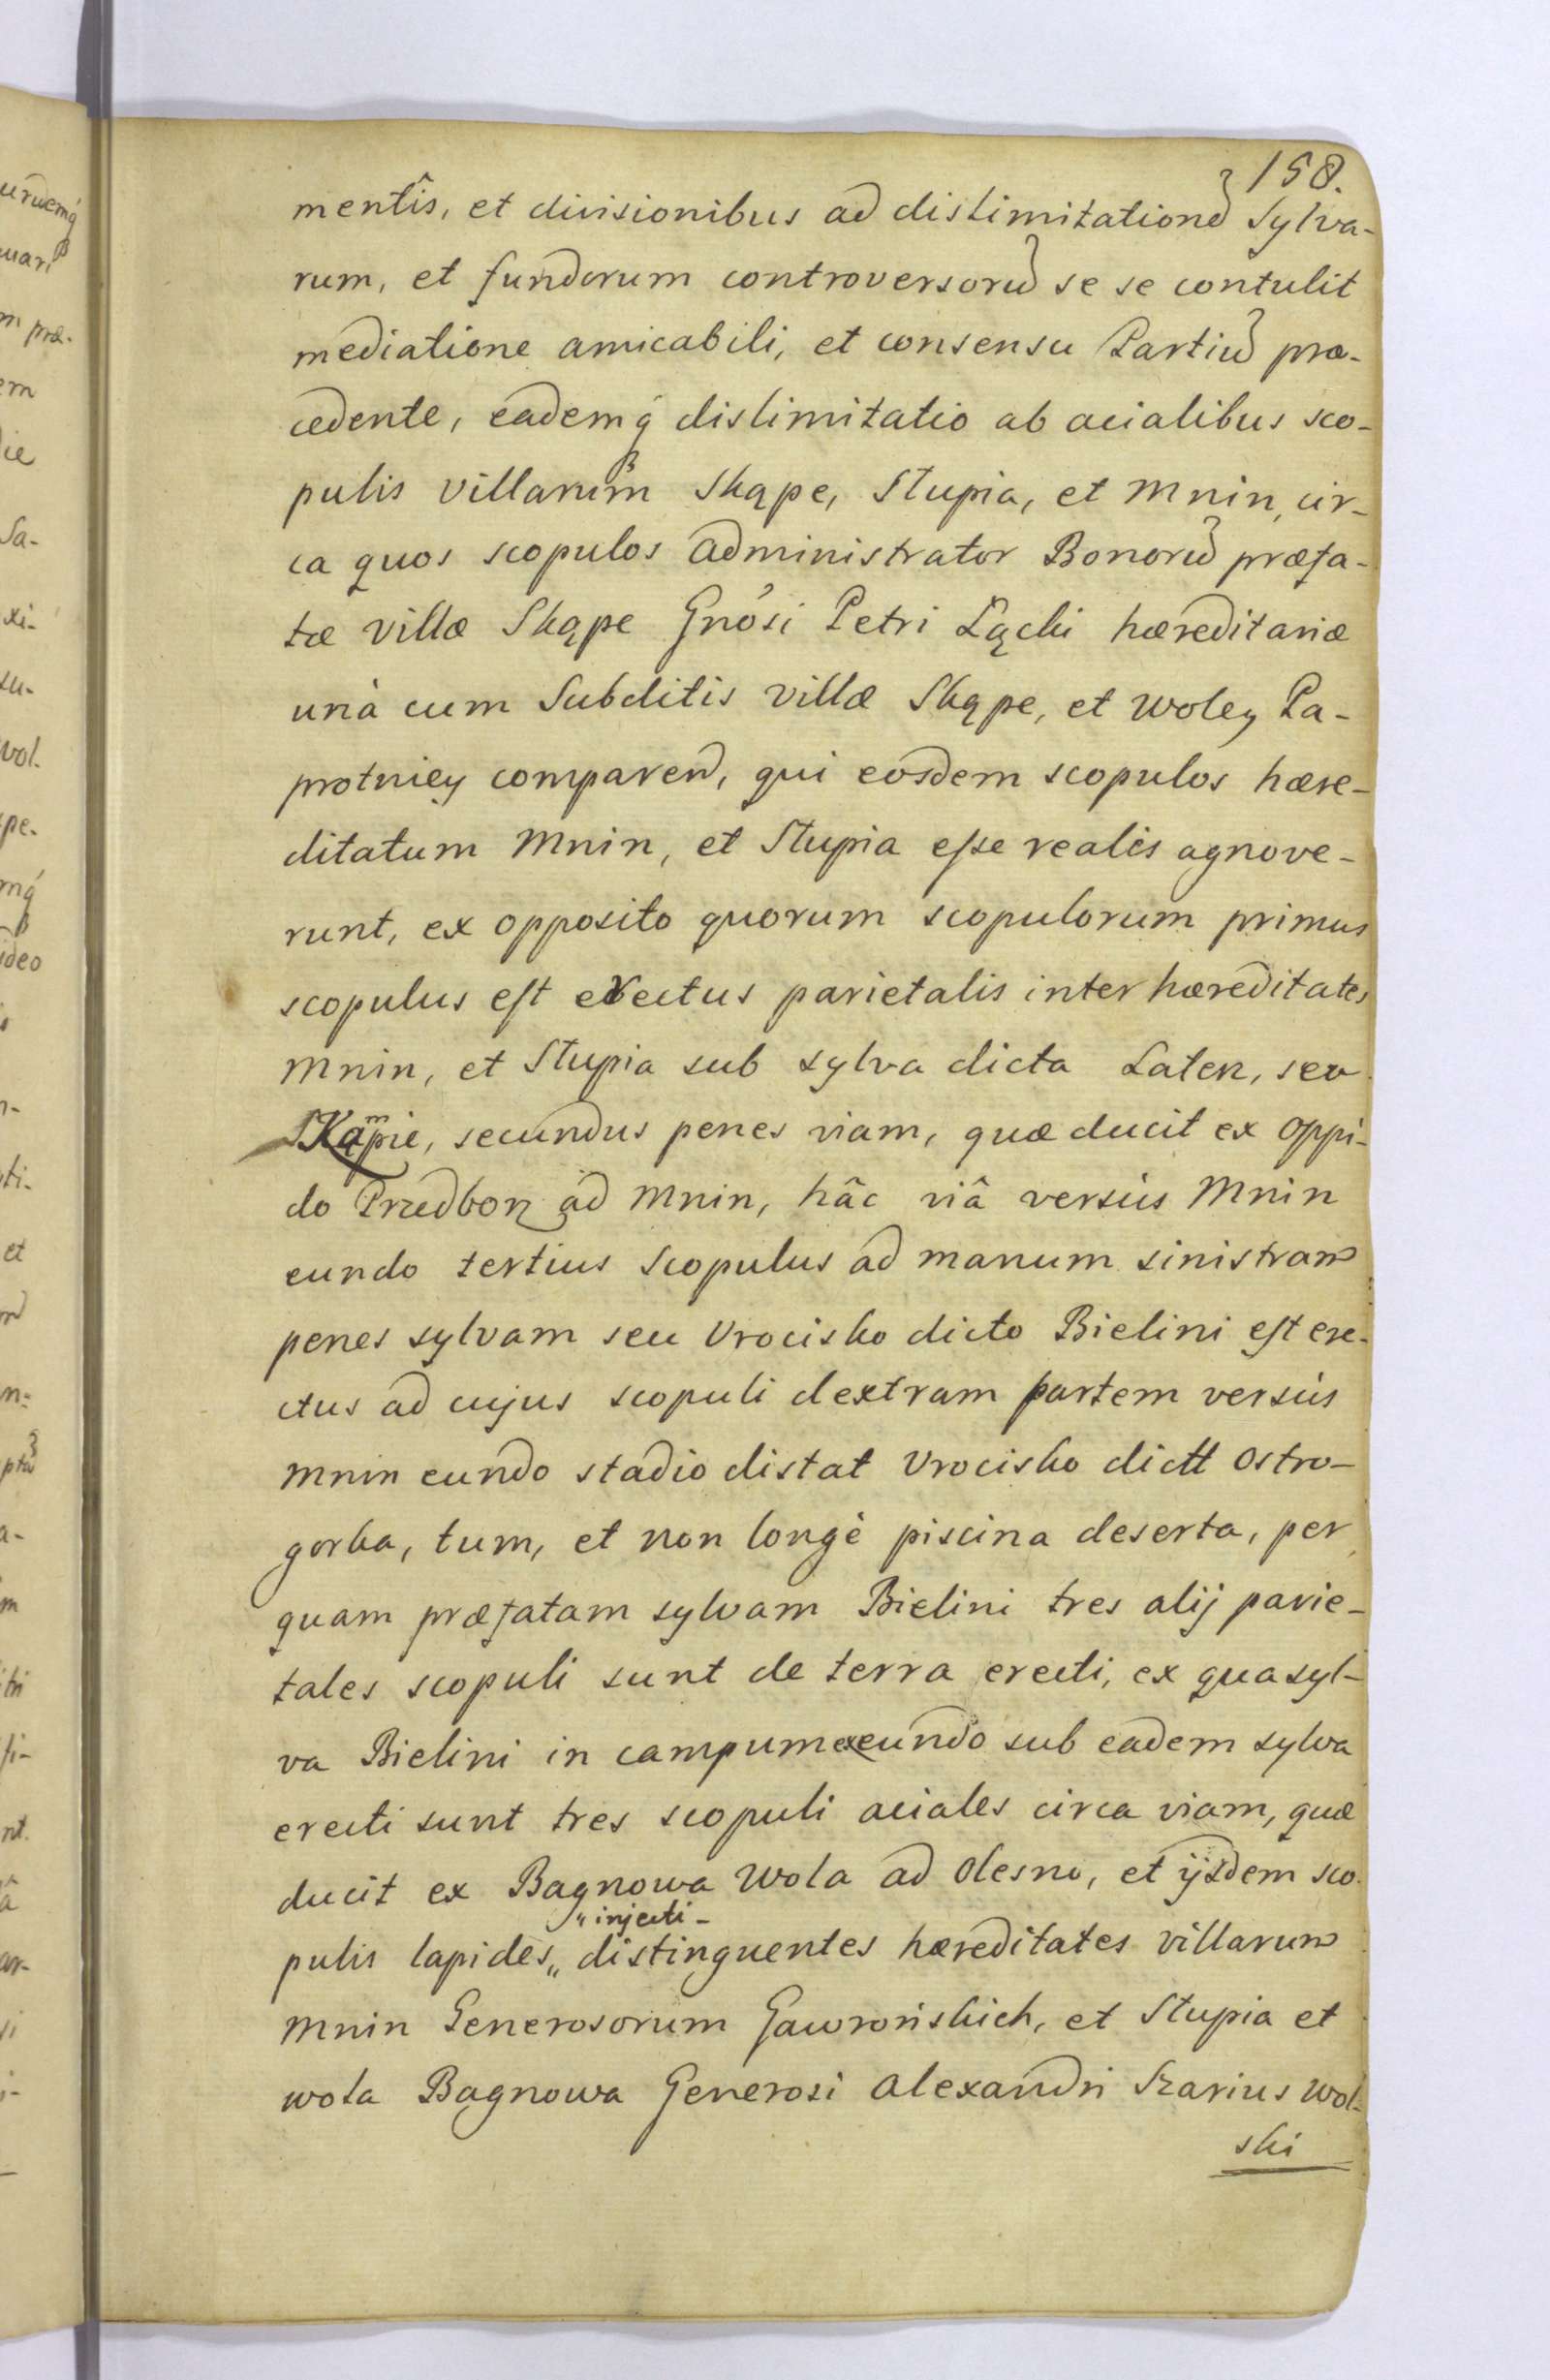 158.
mentis, et divisionibus ad dislimitationem Sylva-
rum, et fundorum controversorum se se contulit
mediatione amicabili, et consensu Partium præ-
cedente, eademq́ dislimitatio ab acialibus sco-
pulis villarum Skąpe, Stupia, et Mnin, cir-
ca quos scopulos Administrator Bonorum præfa-
tæ villæ Skąpe Gnosi Petri Łącki hæreditariæ
unà cum Subditis villæ Skąpe, et Woley Pa-
protniey comparend, qui eosdem scopulos hære-
ditatum Mnin, et Stupia esse reales agnove-
runt, ex opposito quorum scopulorum primus
scopulus est erectus parietalis inter hæreditates
Mnin, et Stupia sub sylva dicta Laten, seu
Kąmpie, secundus penes viam, quæ ducit ex Oppi-
do Przedborz ad Mnin, hâc viâ versùs Mnin
eundo tertius scopulus ad manum sinistram
penes sylvam seu Vrocisko dicto Bielini est ere-
ctus ad cujus scopuli dextram partem versùs
Mnin eundo stadio distat Vrocisko dictt Ostro-
gorka, tum, et non longè piscina deserta, per
quam præfatam sylvam Bielini tres alij parie-
tales scopuli sunt de terra erecti, ex qua syl-
va Bielini in campum exeundo sub eadem sylva
erecti sunt tres scopuli aciales circa viam, quæ
ducit ex Bagnowa Wola ad Olesno, et ijsdem sco-
„injecti-
pulis lapides„ distinguentes hæreditates villarum
Mnin Generosorum Gawrońskich, et Stupia et
Wola Bagnowa Generosi Alexandri Szarius Wol-
ski